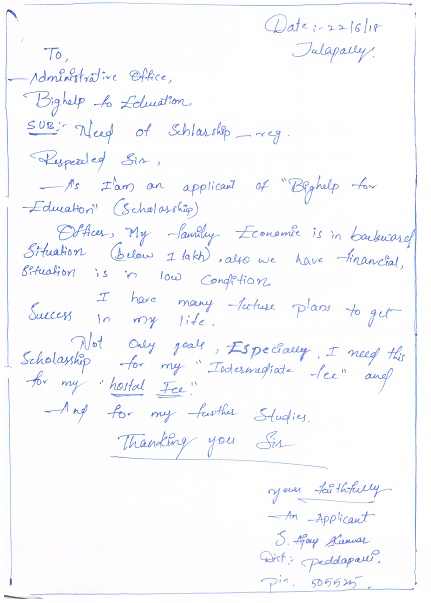 Date:- 22/6/18
Julapally.
To,
Administrative Office,
Bighelp to Education.
SUB:- Need of Schlarship - reg.
Respected Sir,
As I'am an applicant of "Bighelp for
Education" (Scholarship)
Officer, My family Economic is in backward
Situation (below 1 lakh), also we have financial,
situation is in low condition
I have many future plans to get
Success in my life.
Not Only goals, Especially, I need this
Scholarship for my "Intermediate fee" and
for my "hostal Fee."
And for my further Studies.
Thanking you Sir
yours faithfully
An Applicant
S. Ajay Kumar
Dist: peddapalli.
pin. 505525.